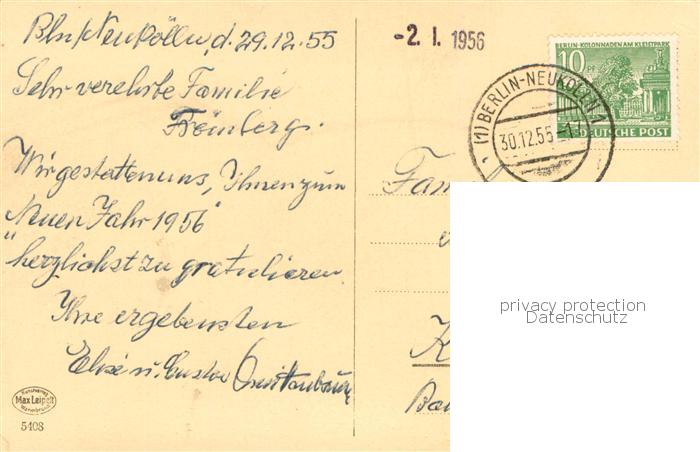 Bln/Neukölln, d. 29.12.55
Sehr verehrte Familie
Frömberg.
Wir gestatten uns, Ihnen zum
"Neuen Jahr 1956"
herzlichst zu gratulieren.
Ihre ergebensten
Elise u. Gustav
Kunstverlag
Max Leipelt
Warmbrunn
5408
-2. I. 1956
BERLIN-KOLONNADEN AM KLEISTPARK
10 PF
DEUTSCHE POST
(1) BERLIN-NEUKÖLLN 1
30.12.55
Fam
K
Ba
privacy protection
Datenschutz